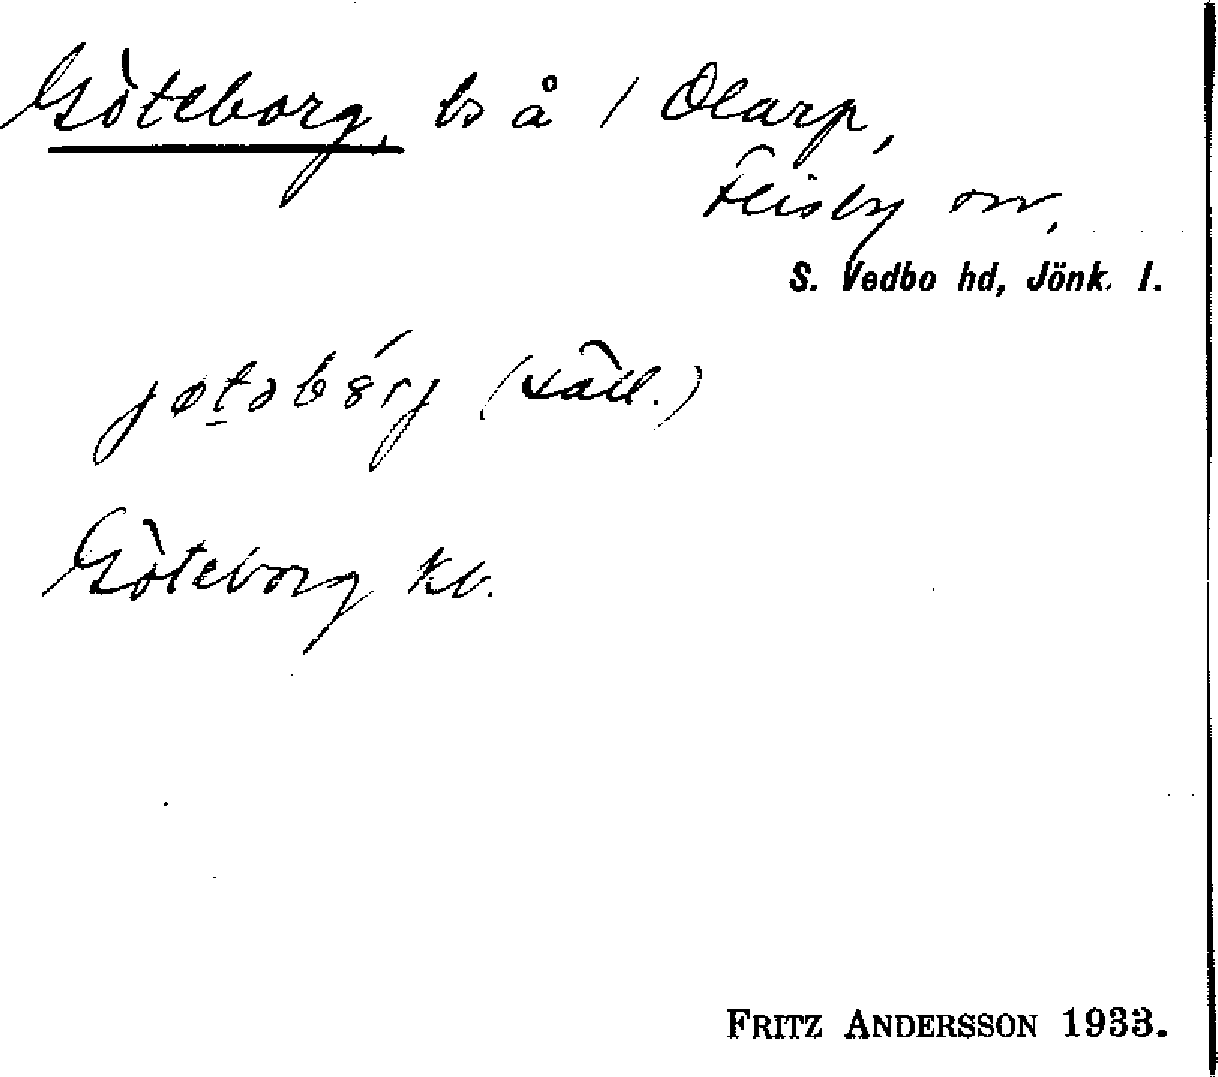 Göteborg, ls å 1 Olarp,
Flisby sn,
S. Vedbo hd, Jönk. l.
jøtəbórj (säll.)
Göteborg kb.
FRITZ ANDERSSON 1933.